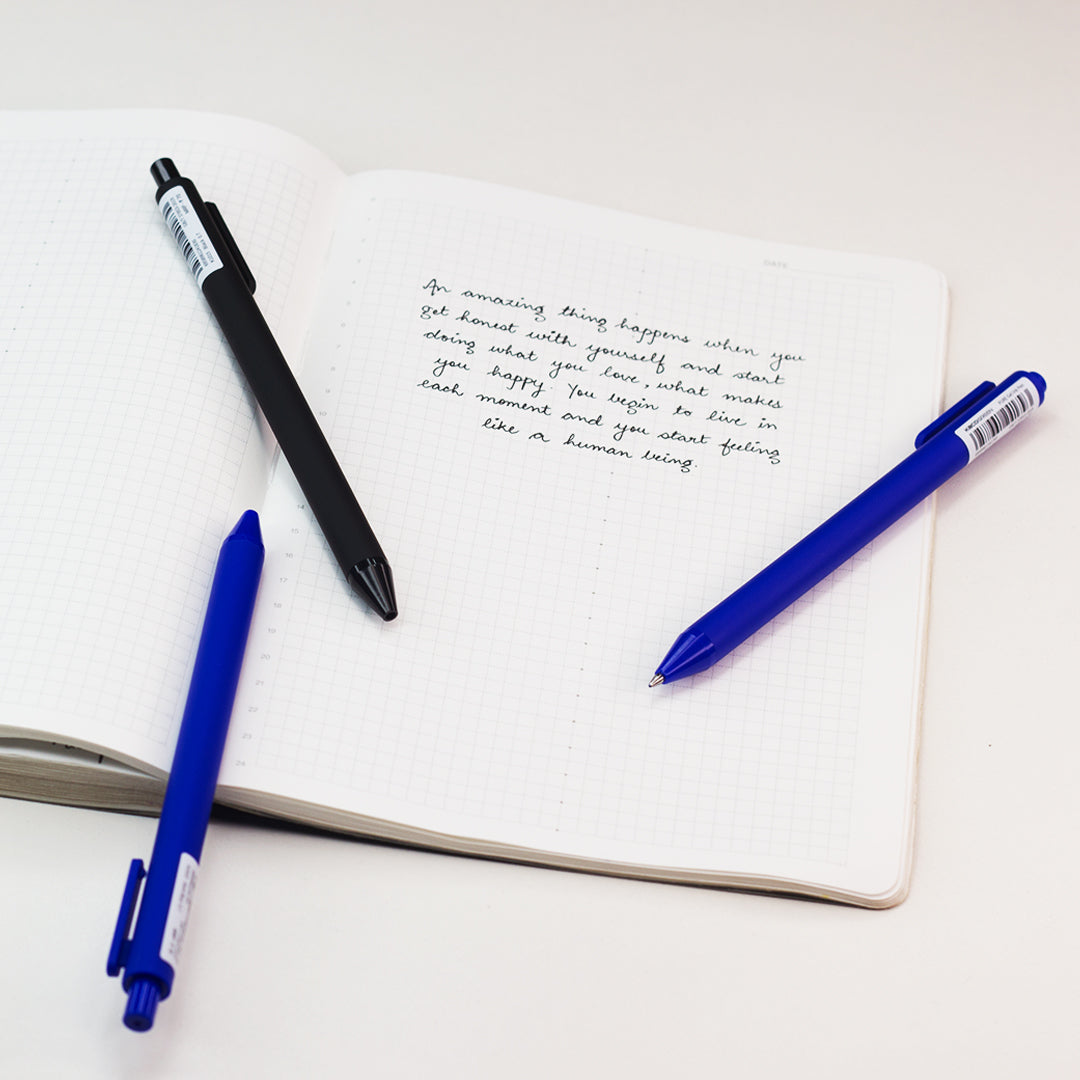 DATE
An amazing thing happens when you
get honest with yourself and start
doing what you love, what makes
you happy. You begin to live in
each moment and you start feeling
like a human being.
10
14
15
16
17
18
19
20
21
22
23
24